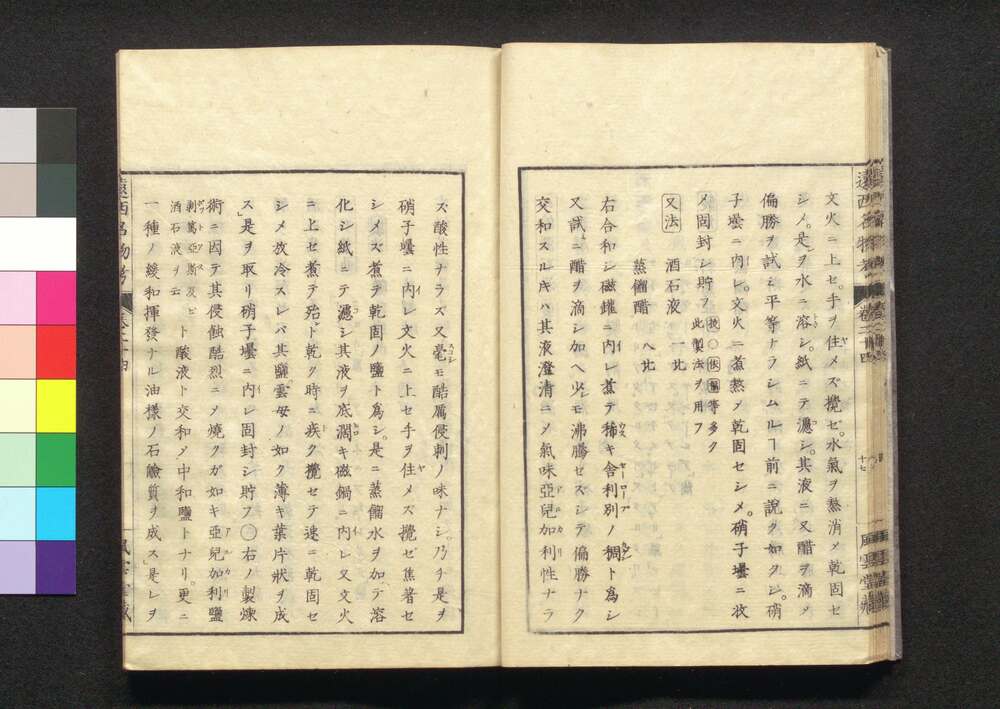 文火ニ上セ。手ヲ住メズ攪セ。水氣ヲ熬消メ乾固セ
シメ。是ヲ水ニ溶シ。紙ニテ濾シ。其液ニ又醋ヲ滴メ
偏勝ヲ試ミ平等ナラシムルヿ前ニ說クカ如クシ。硝
子壜ニ内レ。文火ニ煮熬メ乾固セシメ。硝子壜ニ收
メ固封シ貯フ
此製法ヲ用フ
又法 酒石液 一比
蒸餾醋 八比
右合和シ磁鑵ニ内レ煮テ稀キ舎利別ノ稠トカシ
又試ニ醋ヲ滴シ加ヘ少モ沸騰セズシテ偏勝ナク
交和スルキハ其液澄清ニメ氣味亞兒加利性ナラ
ズ酸性ナラズ又毫モ酷厲侵刺ノ味ナシ。乃チ是ヲ
硝子壜ニ内レ文火ニ上セ手ヲ住メズ攪ゼ焦著セ
シメズ煮テ乾固ノ鹽ト爲シ。是ニ蒸餾水ヲ加テ溶
化シ紙ニテ濾シ其液ヲ底濶キ磁鍋ニ内レ又文火
ニ上セ煮テ殆ト乾ク時ニ疾ク攪セテ速ニ乾固セ
シメ放冷スレバ其鹽雲母ノ如ク薄キ葉片狀ヲ成
ス」是ヲ取リ硝子壜ニ内レ固封シ貯フ○右ノ製煉
術ニ因テ其侵蝕酷烈ニメ燒クガ如キ亞兒加利鹽
剥篤亞斯及ビ
酒石液ヲ云
ト醶液ト交和メ中和鹽トナリ。更ニ
一種ノ緩和揮發ナル油様ノ石鹼質ヲ成ス」是レヲ
遠西名物考